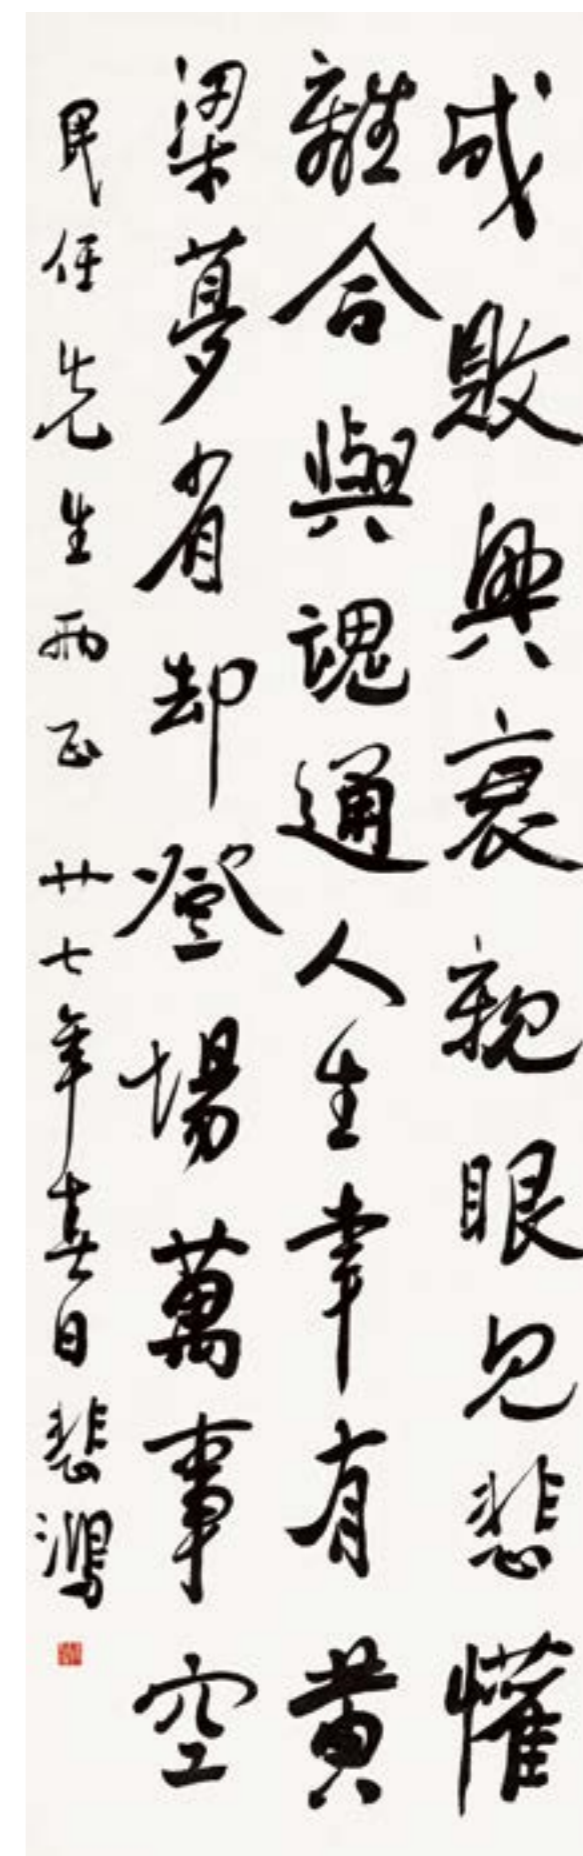 成敗興衰親眼見悲懽
離合與魂通人生幸有黄
梁夢省却登場萬事空
民任先生兩正 廿七年春日 悲鴻